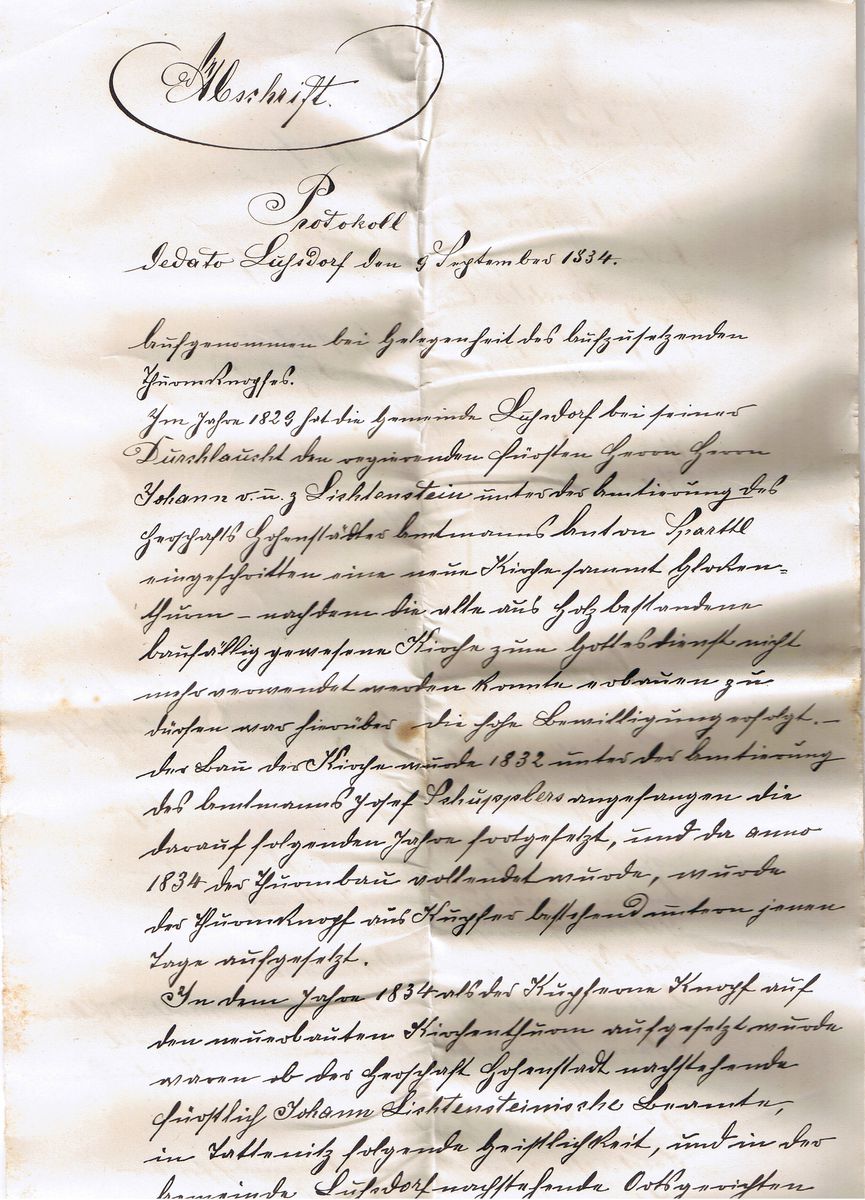 Abschrift.
Protokoll
dedato Luhsdorf den 9 September 1834.
Aufgenommen bei Gelegenheit des Aufzusetzenden
Thurmknopfes.
Im Jahre 1829 hat die Gemeinde Luhsdorf bei seiner
Durchlaucht den regierenden Fürsten Herrn Herrn
Johann v. u. z Lichtenstein unter der Amtierung des
Herschafts Hohenstädter Amtmanns Anton Sparttl
eingeschritten eine neue Kirche sammt Gloken=
thurm – nachdem die alte aus Holz bestandene
baufällig gewesene Kirche zum Gottesdienst nicht
mehr verwendet werden konte erbauen zu
dürfen war hierüber die hohe Bewilligung erfolgt. –
der Bau der Kirche wurde 1832 unter der Amtierung
des Amtmanns Josef Schupplers angefangen die
darauf folgenden Jahre fortgesetzt, und da anno
1834 der Thurmbau vollendet wurde, wurde
der Thurmknopf aus Kupfer bestehend untern jenen
Tage aufgesetzt.
In dem Jahre 1834 als der Kupferne Knopf auf
den neuerbauten Kirchenthurm aufgesetzt wurde
waren ob der Herschaft Hohenstadt nachstehende
fürstlich Johann Lichtensteinische Beamte,
in Tattenitz folgende Geistlichkeit, und in der
Gemeinde Luhsdorf nachstehende Ortsgerichten